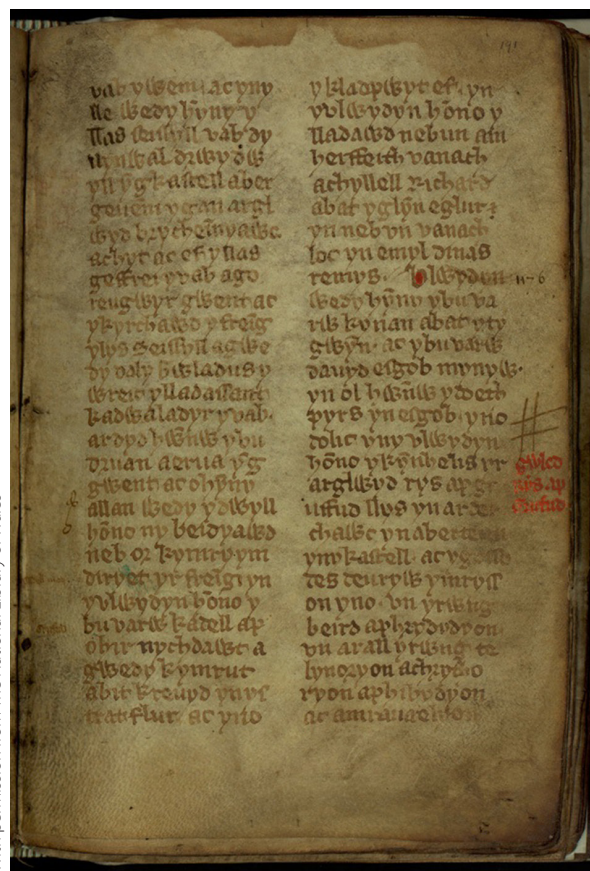 vab ywein. ac yny
lle wedy hynny y
llas seissyll vab dy
drwy dw
yll ygkastell aber
geuenni y gan argl
wyd brycheinyawc.
achyt ac ef y llas
geffrei y vab ago
reugwyr gwent ac
y kyrchawd y freīg
y lys Seissyll agwe
dy daly Gwladus y
wreic y lladassant
kadwaladyr y vab.
ar dyd hỽnỽ y bu
druan aerua yg
gwent ac ohynny
allan wedy y dỽyll
hōno ny beidyaỽd
neb or kymry ym
diryet yr freīgi yn
y vlỽydyn hōno y
bu varỽ kadell ap
nychdaỽt a
gỽedy kymrut
abit kreuyd yn ys
trat flur. ac yno
y kladpỽyt ef. yn
y vlỽydyn hōno y
lladaỽd nebun am
herffeith vanach
achyllell Richard
abat yglyn eglur:
yn nebvn vanach
loc yn emyl dinas
remys. blỽydyn
ỽedy hynny y bu va
rỽ kynan abat y ty
gỽyn. ac y bu varỽ
dauyd esgob mynyỽ.
yn ol hỽnnỽ y doeth
pyrs yn esgob. yno
dolic yny vlỽydyn
hōno y kynhelis yr
arglỽyd rys ap gr
uffud llys yn arder
chaỽc yn aberteiui
yny kastell. ac y gosso
des deuryỽ ymryss
on yno. vn yrỽng
beird aphrydydyon
vn arall yrỽng te
lynoryon achrythо
ryon aphibydyon
gỽled
rys ap
Gruffud
191